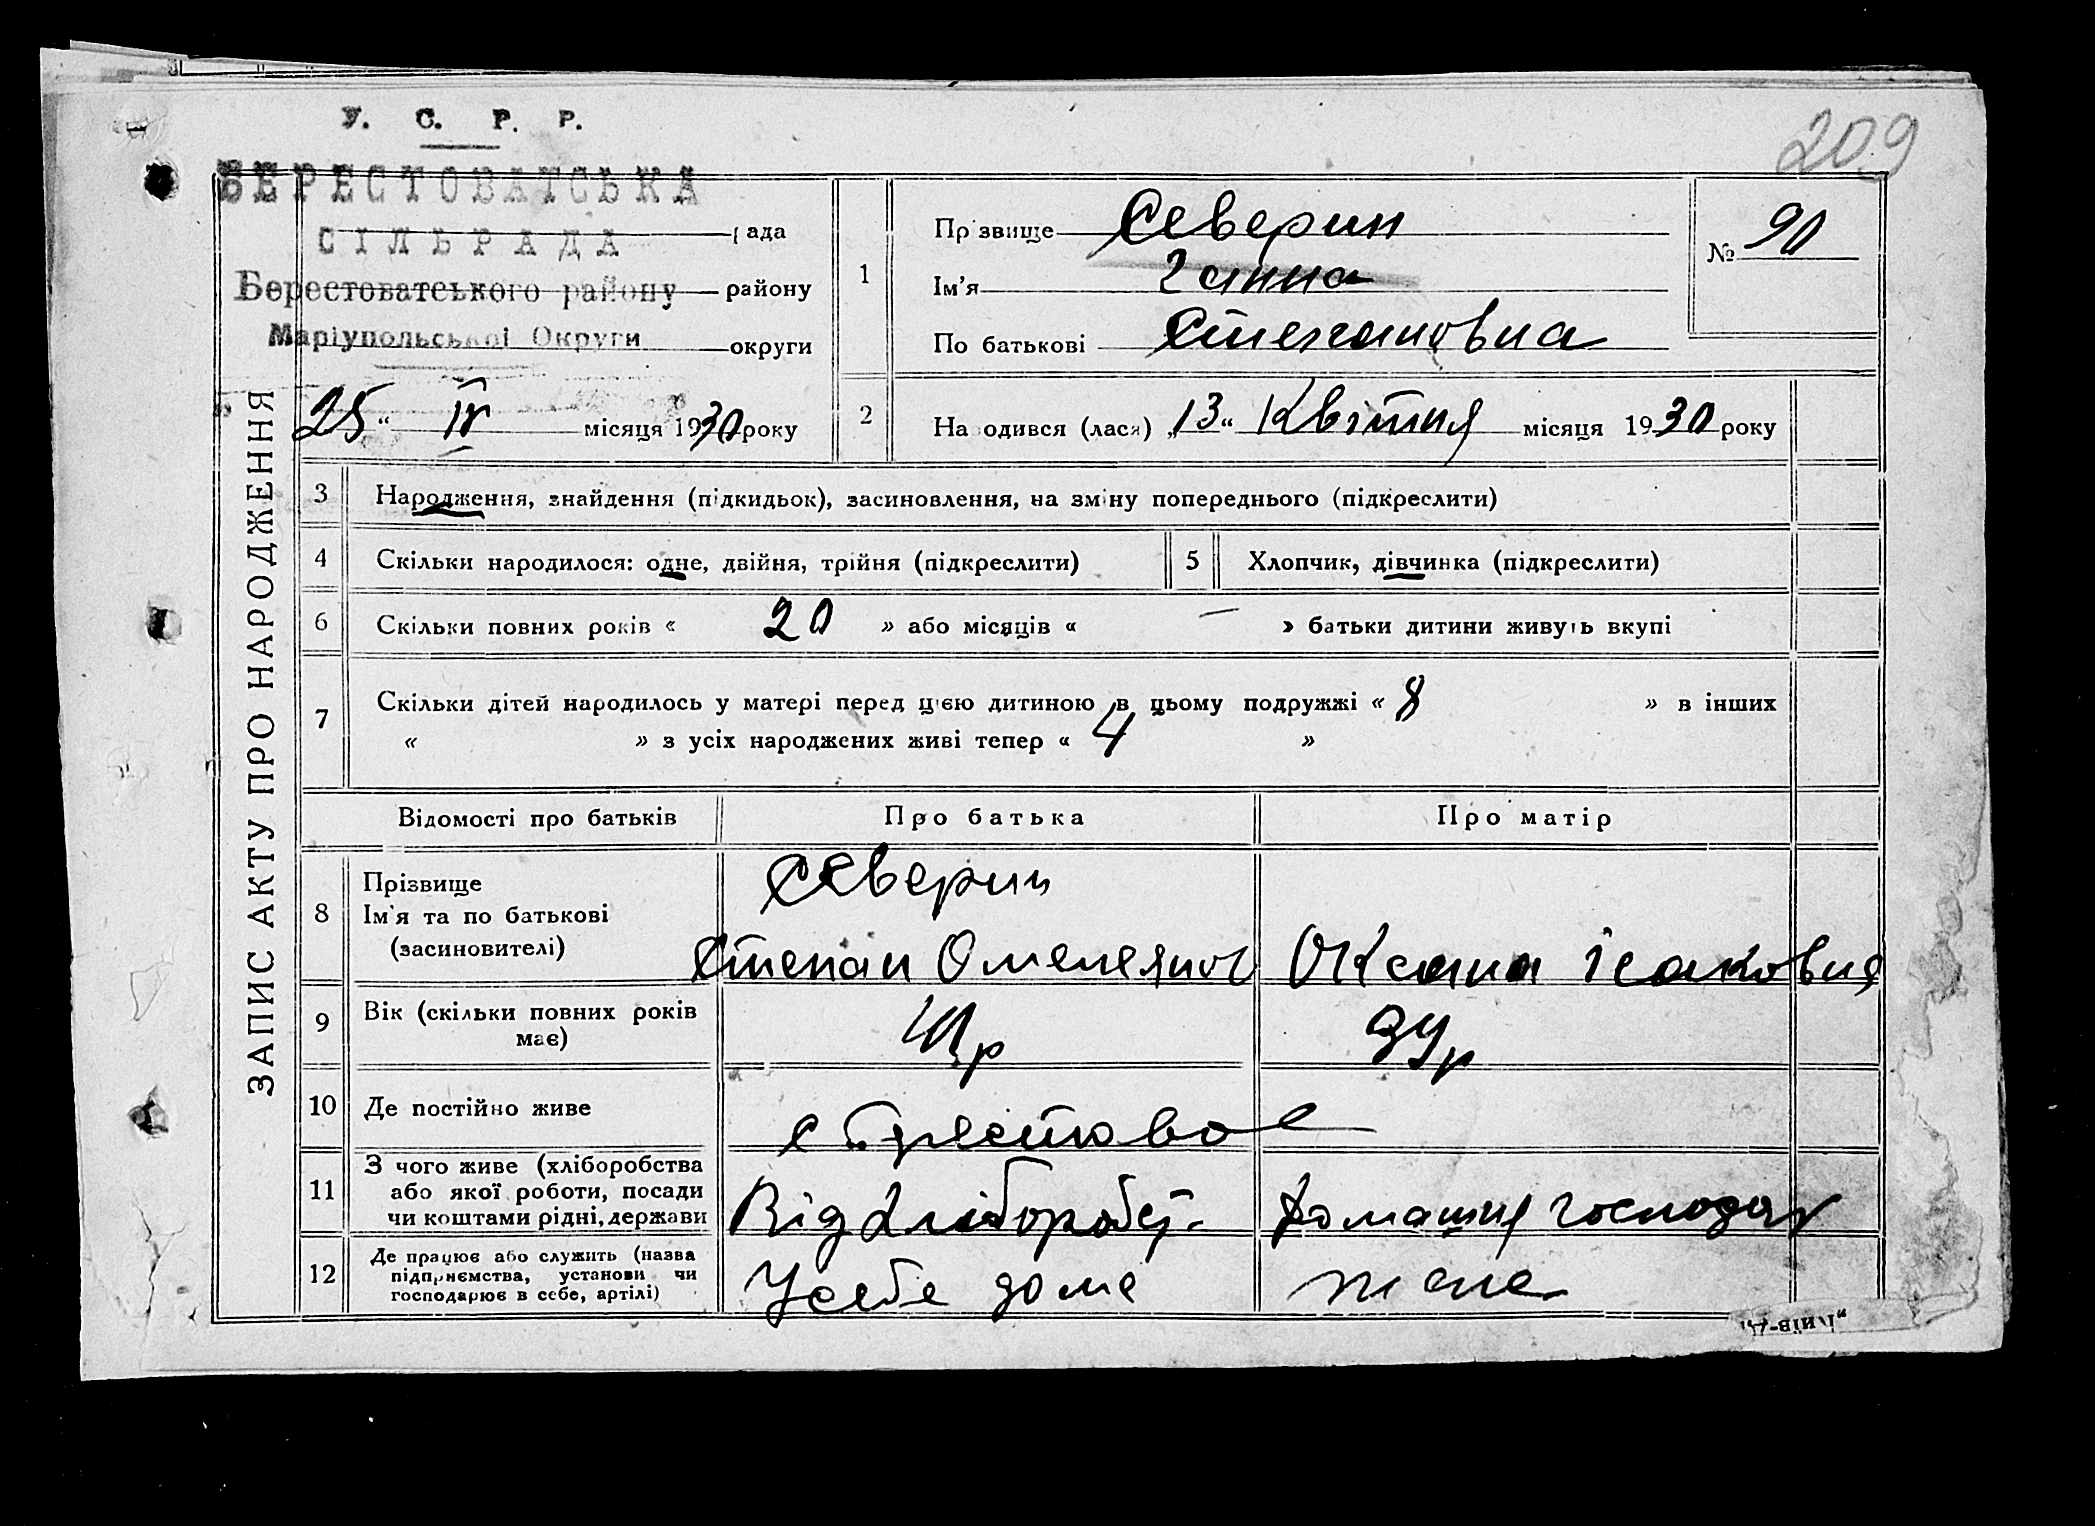 У. С. Р. Р.
209
БЕРЕСТОВАТСЬКА
СІЛЬРАДА рада
Берестоватського району району
Маріупольської Округи округи
25 " IV місяця 1930 року
ЗАПИС АКТУ ПРО НАРОДЖЕННЯ
1 Прізвище Северин
Ім'я Ганна
По батькові Степановна
№ 90
2 Народився (лася) „13" Квітня місяця 1930 року
3 Народження, знайдення (підкидьок), засиновлення, на зміну попереднього (підкреслити)
4 Скільки народилося: одне, двійня, трійня (підкреслити) 5 Хлопчик, дівчинка (підкреслити)
6 Скільки повних років « 20 » або місяців « — » батьки дитини живуть вкупі
7 Скільки дітей народилось у матері перед цією дитиною в цьому подружжі « 8 » в інших
« » з усіх народжених живі тепер « 4 »
Відомості про батьків Про батька Про матір
8 Прізвище
Ім'я та по батькові
(засиновителі)
Северин
Степан Омелянов Оксана Ісаковна
9 Вік (скільки повних років
має)
10 Де постійно живе с Берестовое
11 З чого живе (хліборобства
або якої роботи, посади
чи коштами рідні, держави
Від Хлібороб. Домашня господар
12 Де працює або служить (назва
підприємства, установи чи
господарює в себе, артілі)
У себе дома